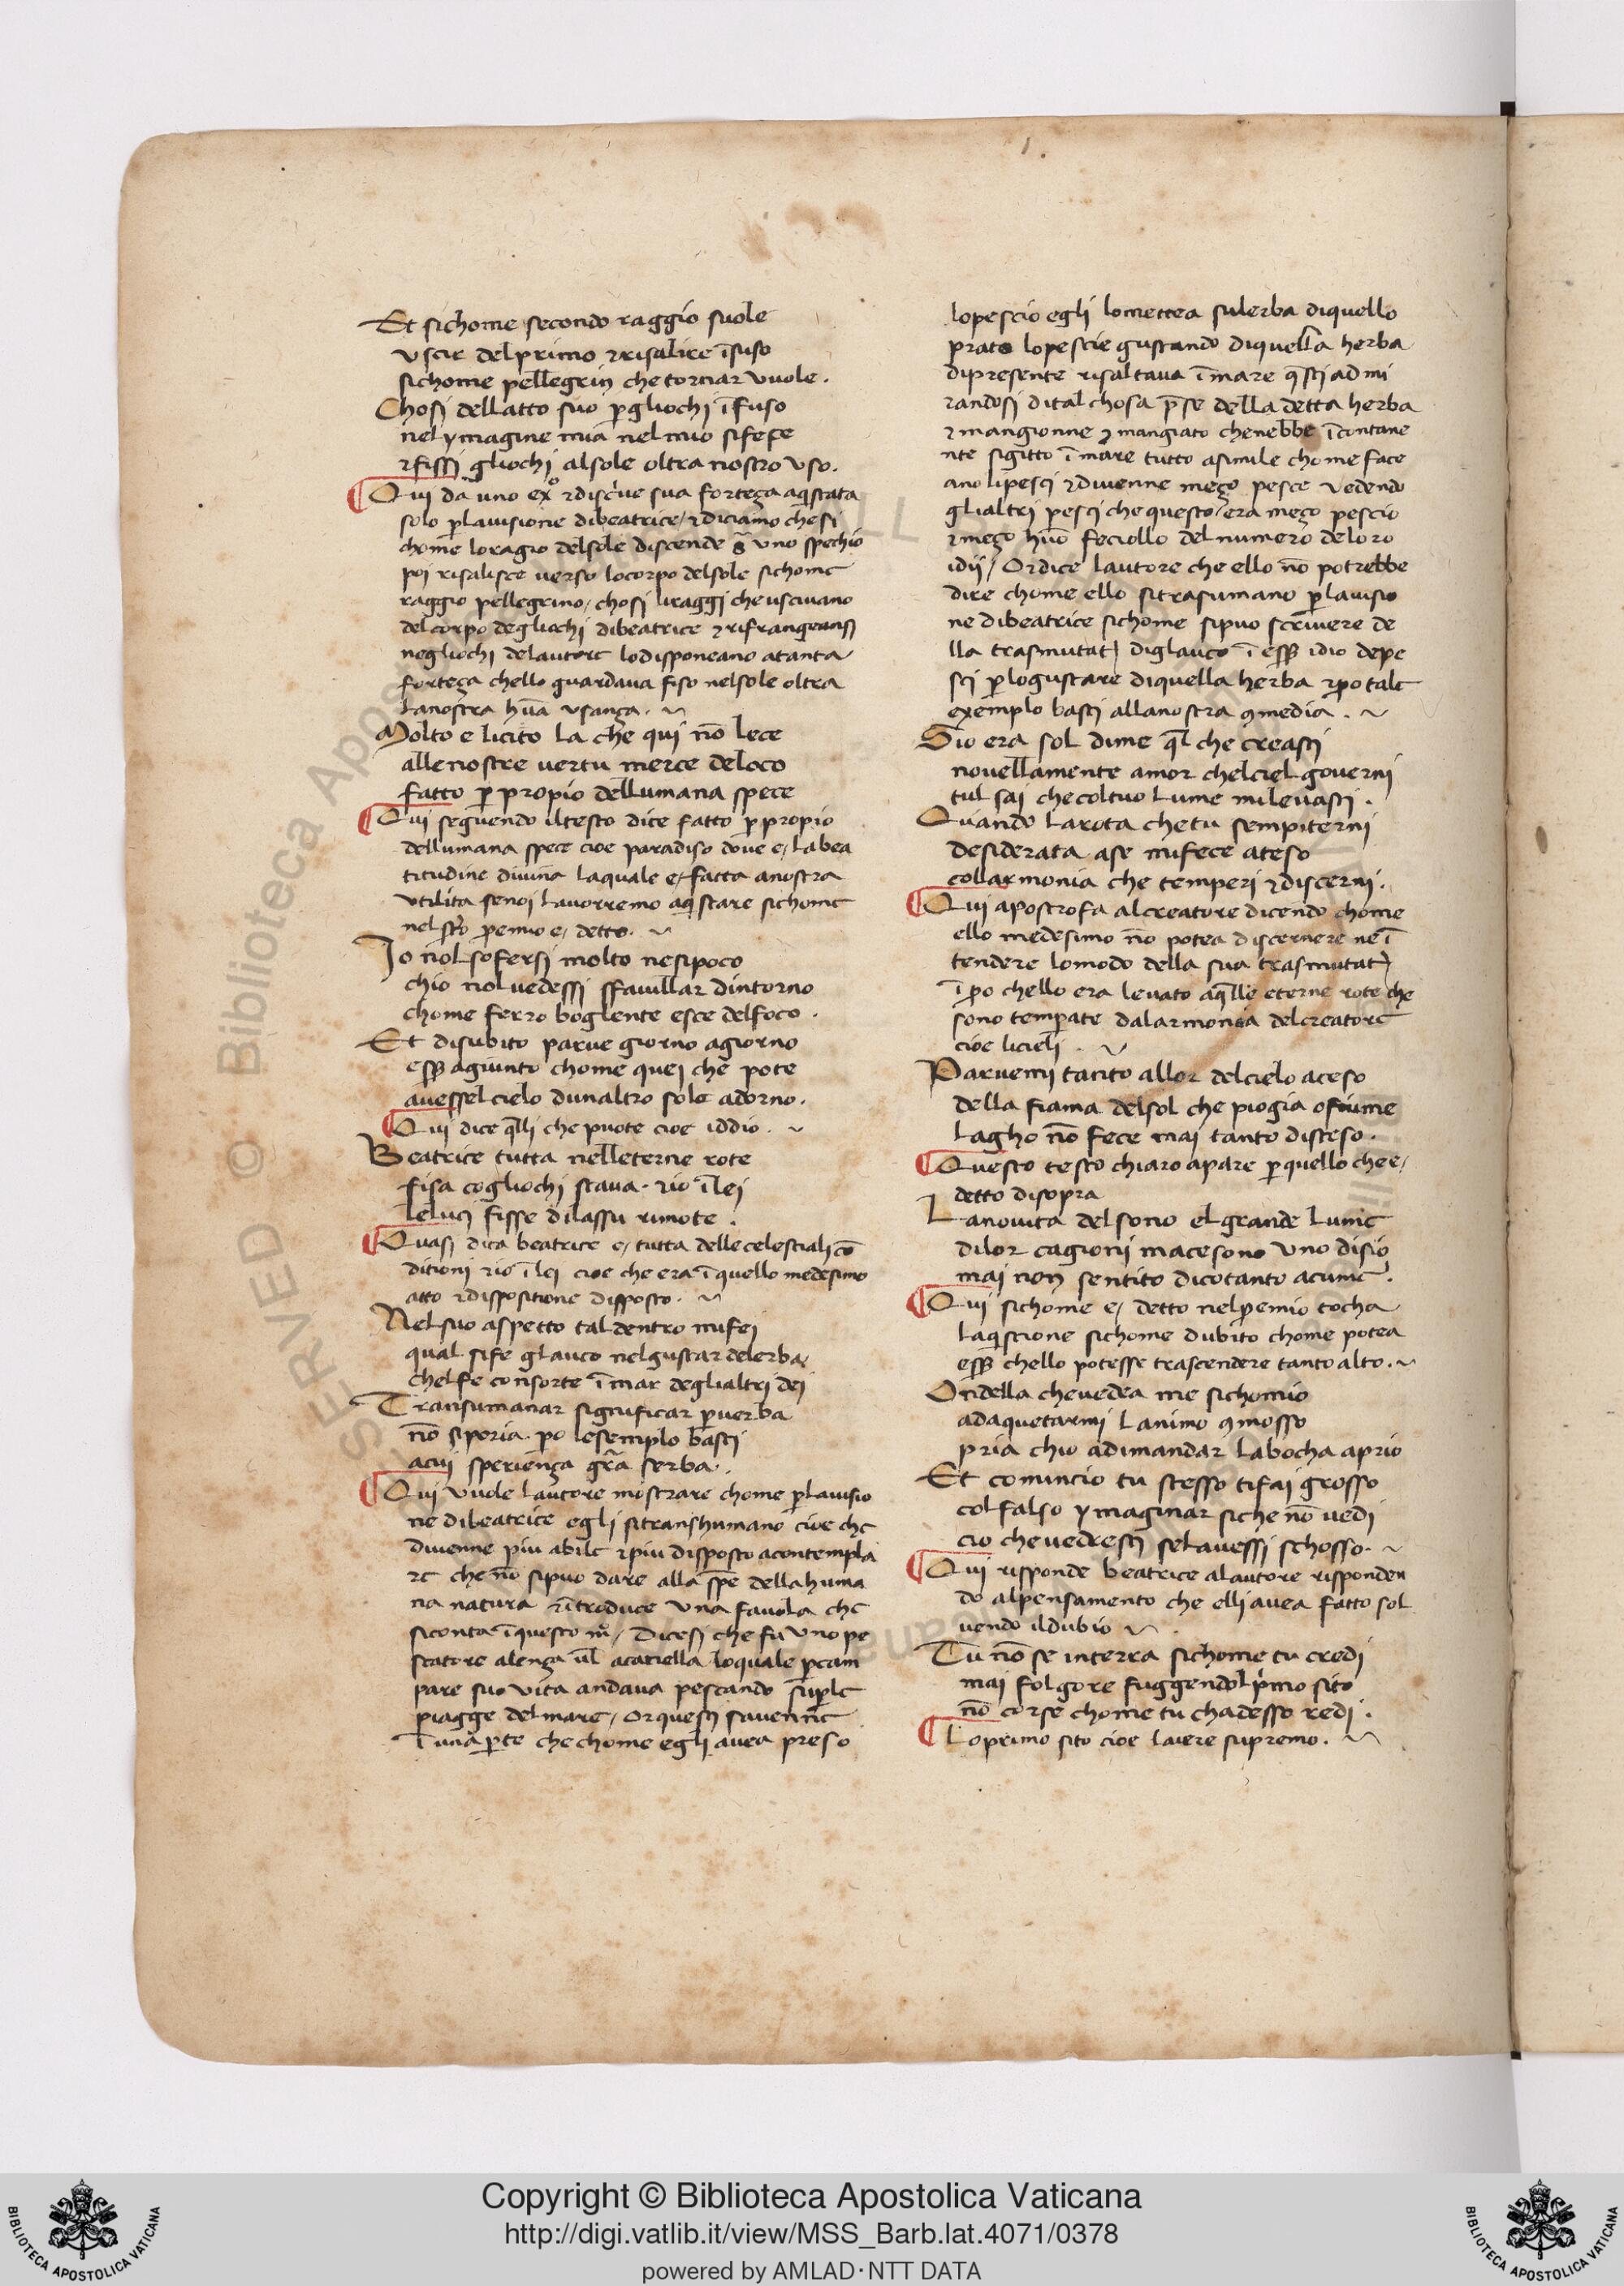 Et sichome secondo raggio suole
vscir del primo ⁊ risalire ĩsuso
sichome pellegrin che tornar vuole.
Chosi dellatto suo ꝑ gliochi ĩfuso
nel ymagine mia nel mio sifece
⁊ fissi gliochi alsole oltra nostro vso.
Qui da uno exo ⁊ discriue sua forteça aq̃stata
solo ꝑ lauisione dibeatrice / ⁊ diciamo che si
chome loragio delsole discende uno spechio
poi risalisce verso locorpo delsole sichome
raggio pellegrino / chosi liraggi che uscivano
del corpo degliochi dibeatrice ⁊ rifrangeansi
negliochi delautore lo disponeano atanta
forteça chello guardaua fiso nelsole oltra
lanostra hũa vsança.
Molto e licito la che qui nõ lece
alle nostre uertu merce deloco
fatto ꝑ propio dellumana spece
Qui seguendo iltesto dice fatto ꝑ propio
dellumana spece cioe paradiso doue e / la bea
titudine diuina laquale e / fatta anostra
vtilita senoi lauorremo aq̃stare sichome
nel ꝓemio e / detto.
Io nol sofersi molto nesipoco
chio nol uedessi sfauillar dintorno
chome ferro boglente esce delfoco.
Et disubito parue giorno agiorno
essere agiunto chome quei che pote
auessel cielo dunaltro sole adorno.
Qui dice q̃lli che puote cioe iddio.
Beatrice tutta nelleterne rote
fisa cogliochi staua. ⁊ io ĩ lei
leluci fisse dilassu rimote.
Quasi dica beatrice e / tutta delle celestiali cõ
ditioni ⁊ io ĩ lei cioe che era ĩ quello medesimo
atto ⁊ dispositione disposto.
Nelsuo aspetto tal dentro mifei
qual sife glauco nelgustar delerba
chelfe consorte ĩ mar deglialtri dei
Transumanar significar ꝑ uerba
nõ siporia. ꝑo lesemplo basti
acui speriença gr̃a serba.
Qui vuole lautore mostrare chome ꝑ lauisio
ne dibeatrice egli sitranshumano cioe che
diuenne piu abile ⁊ piu disposto acontempla
re che nõ sipuo dare alla spẽ della huma
na natura ⁊ ĩtroduce una fauola che
siconta ĩ questo mõ / Dicesi che fu uno pe
scatore alença acanella loquale ꝑ cam
pare suo vita andaua pescando ꝑ le
piagge del mare / or questi sauenne
ĩ una ꝑte che chome egli auea preso
lopescio egli lomettea sulerba diquello
prato lopescie gustando diquella herba
dipresente risaltaua ĩ mare q̃sti admi
randosi dital chosa p̃se della detta herba
⁊ mangionne ⁊ mangiato chenebbe ĩcontane
nte sigitto ĩ mare tutto asimile chome face
ano lipesci ⁊ diuenne meço pesce vedendo
glialtri pesci che questo era meço pescio
⁊ meço hũo feciollo del numero deloro
idij / Or dice lautore che ello nõ potrebbe
dire chome ello sitrasumano ꝑ lauisio
ne dibeatrice sichome sipuo scriuere de
lla trasmutat diglauco ĩ essere idio depe
sci ꝑ logustare diquella herba ⁊ ꝑo tale
exemplo basti allanostra ꝯmedia.
Sio era sol dime q̃l che creasti
nouellamente amor chelciel governi
tul sai checoltuo lume mileuasti.
Quando larota chetu sempiterni
desiderata ase mifece ateso
collarmonia che temperi ⁊ discerni.
Qui apostrofa alcreatore dicendo chome
ello medesimo nõ potea discernere ne ĩ
tendere lomodo della sua trasmutat
ĩ ꝑo chello era leuato aq̃lle eterne rote che
sono temperate dalarmonia delcreatore
cioe licieli.
Paruemi tanto allor delcielo aceso
della fiama delsol che piogia o fiume
lagho nõ fece mai tanto disteso.
Questo testo chiaro apare ꝑ quello che e /
detto disopra
Lanouita delsono elgrande lume
dilor cagioni macesono uno disio
mai non sentito dicotanto acume.
Qui sichome e / detto nelꝓemio tocha
laq̃stione sichome dubito chome potea
essere chello potesse trascendere tanto alto.
Ondella chevedea me sichomio
adaquetarmi lanimo ꝯmosso
pria chio adimandar labocha aprio
Et comincio tu stesso tifai grosso
colfalso ymaginar siche nõ uedi
cio che uedresti selauessi schosso.
Qui risponde beatrice alautore risponden
do alpensamento che elli auea fatto sol
uendo ildubio
Tu nõ se interra sichome tu credi
mai folgore fuggendol primo sito
nõ corse chome tu chadesso redi.
Lo primo sito cioe laiere supremo.
Copyright © Biblioteca Apostolica Vaticana
http://digi.vatlib.it/view/MSS_Barb.lat.4071/0378
powered by AMLAD·NTT DATA
BIBLIOTECA APOSTOLICA VATICANA
BIBLIOTECA APOSTOLICA VATICANA